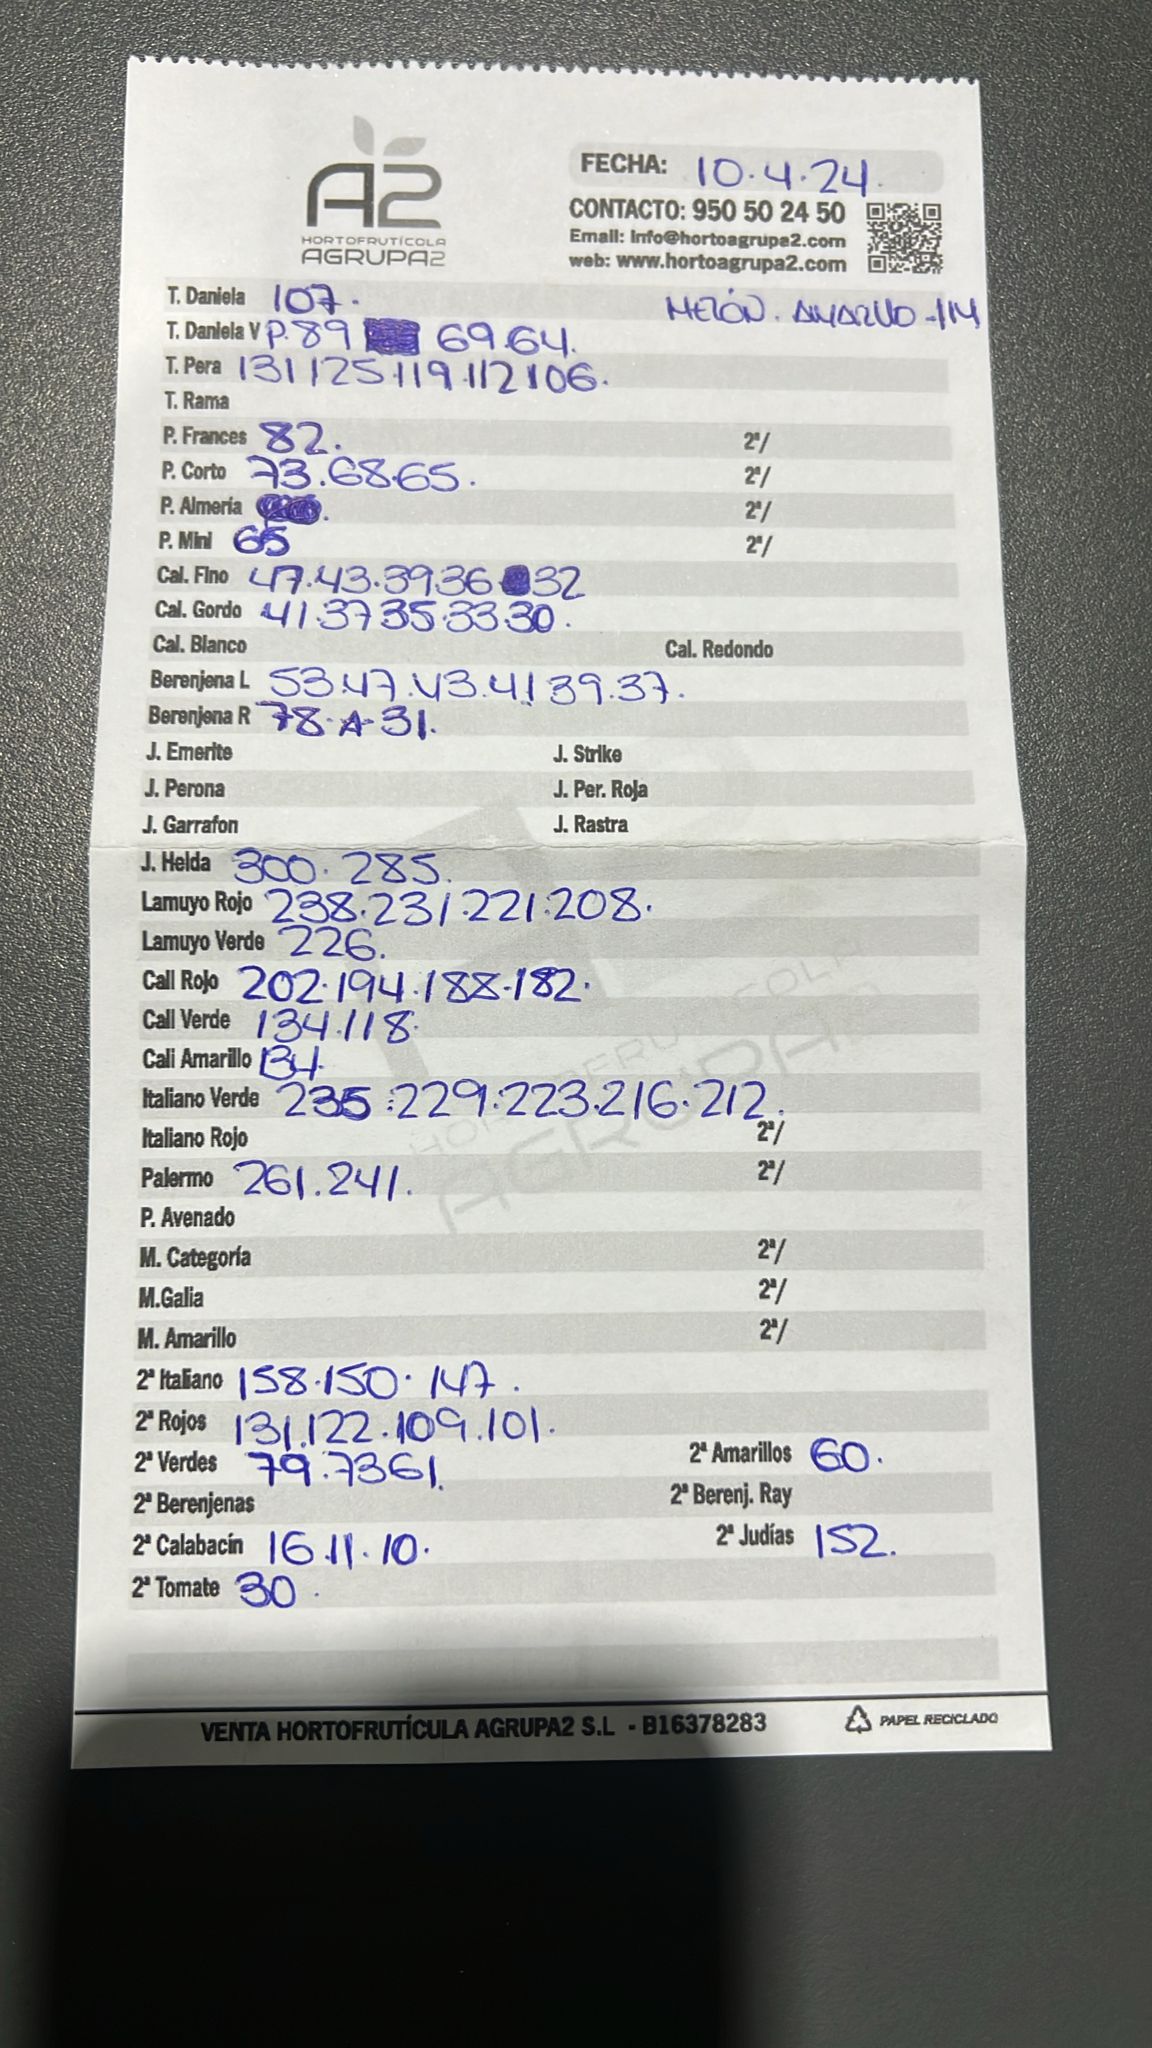 A2
HORTOFRUTÍCOLA
AGRUPA2
FECHA: 10.4.24.
CONTACTO: 950 50 24 50
Email: Info@hortoagrupa2.com
web: www.hortoagrupa2.com
T. Daniela 107. MELÓN. AMARILLO - 114
T. Daniela V P. 89 69.64.
T. Pera 131 125.119.112 106.
T. Rama
P. Frances 82. 2ª/
P. Corto 73.68.65. 2ª/
P. Almería 2ª/
P. Mini 65 2ª/
Cal. Fino 47.43.39 36 32
Cal. Gordo 41.37 35.33.30.
Cal. Blanco Cal. Redondo
Berenjena L 53.47.43.41 39.37.
Berenjena R 78-A-31.
J. Emerite J. Strike
J. Perona J. Per. Roja
J. Garrafon J. Rastra
J. Helda 300. 285.
Lamuyo Rojo 238.231.221.208.
Lamuyo Verde 226.
Cali Rojo 202.194.188.182.
Cali Verde 134.118.
Cali Amarillo 134.
Italiano Verde 235.229.223.216.212.
Italiano Rojo 2ª/
Palermo 261.241. 2ª/
P. Avenado
M. Categoría 2ª/
M.Galia 2ª/
M. Amarillo 2ª/
2ª Italiano 158.150. 147.
2ª Rojos 131.122.109.101.
2ª Verdes 79.73 61. 2ª Amarillos 60.
2ª Berenjenas 2ª Berenj. Ray
2ª Calabacín 16.11.10. 2ª Judías 152.
2ª Tomate 30.
VENTA HORTOFRUTÍCULA AGRUPA2 S.L - B16378283 PAPEL RECICLADO